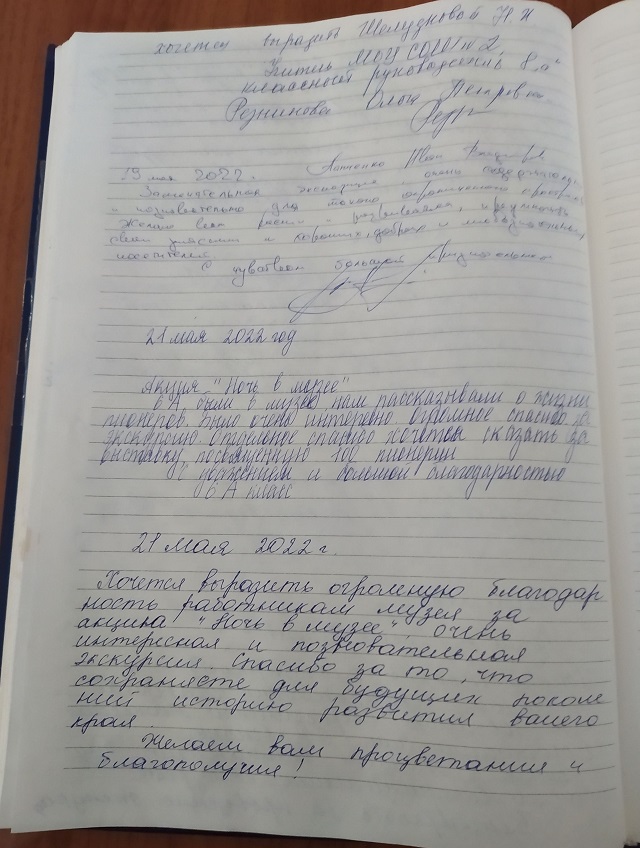 хочется выразить Шелудковой Н.И
Учитель МОУ СОШ №2,
классный руководитель 8 "а"
Резникова Ольга Петровна
13 мая 2022г. Иван
Замечательная экскурсия, очень
и познавательно для такого
Желаю Вам расти и развиваться,
свои и хороших, добрых и
посетителей.
С чувством большой
21 мая 2022 год
Акция "Ночь в музее"
6 А были в музее, нам рассказывали о жизни
пионеров. Было очень интересно огромное спасибо за
экскурсию. Отдельное спасибо хочется сказать за
выставку, посвященную 100 пионерии
С уважением и большой благодарностью
6 А класс
21 мая 2022 г.
Хочется выразить огромную благодар
ность работникам музея за
акцию "Ночь в музее", очень
интересная и позновательная
экскурсия. Спасибо за то, что
сохраняете для будущих поколе
ний историю развития вашего
края.
Желаем вам процветания и
благополучия!